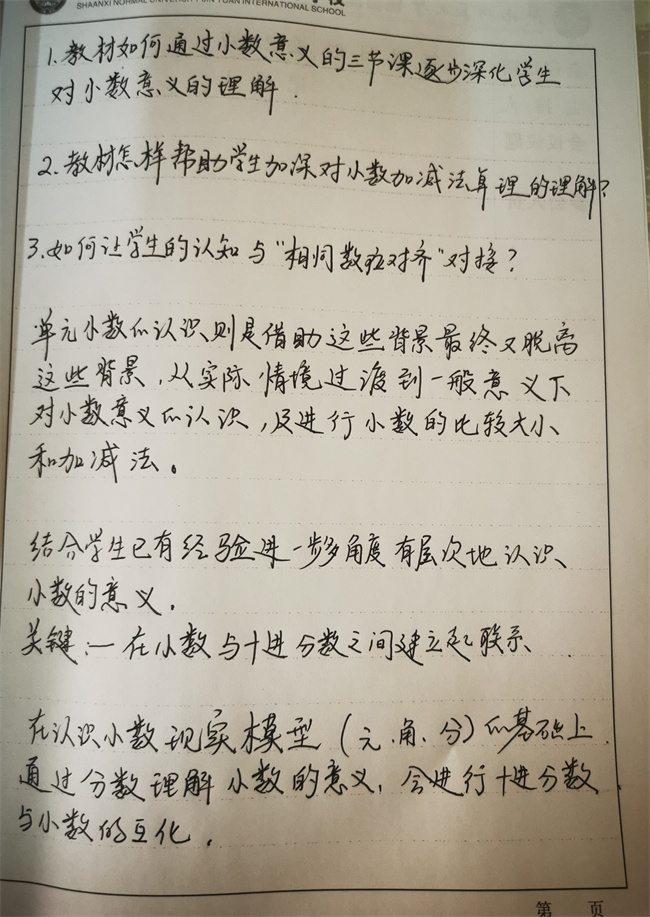 SHAANXI NORMAL UNIVERSITY INTERNATIONAL SCHOOL
1.教材如何通过小数意义的三节课逐步深化学生
对小数意义的理解.
2.教材怎样帮助学生加深对小数加减法算理的理解?
3.如何让学生的认知与“相同数位对齐”对接?
单元小数的认识则是借助这些背景最终又脱离
这些背景,从实际情境过渡到一般意义下
对小数意义的认识,及进行小数的比较大小
和加减法。
结合学生已有经验进一步多角度有层次地认识
小数的意义.
关键:一在小数与十进分数之间建立起联系.
在认识小数现实模型(元.角.分)的基础上
通过分数理解小数的意义,会进行十进分数
与小数的互化.
第 页